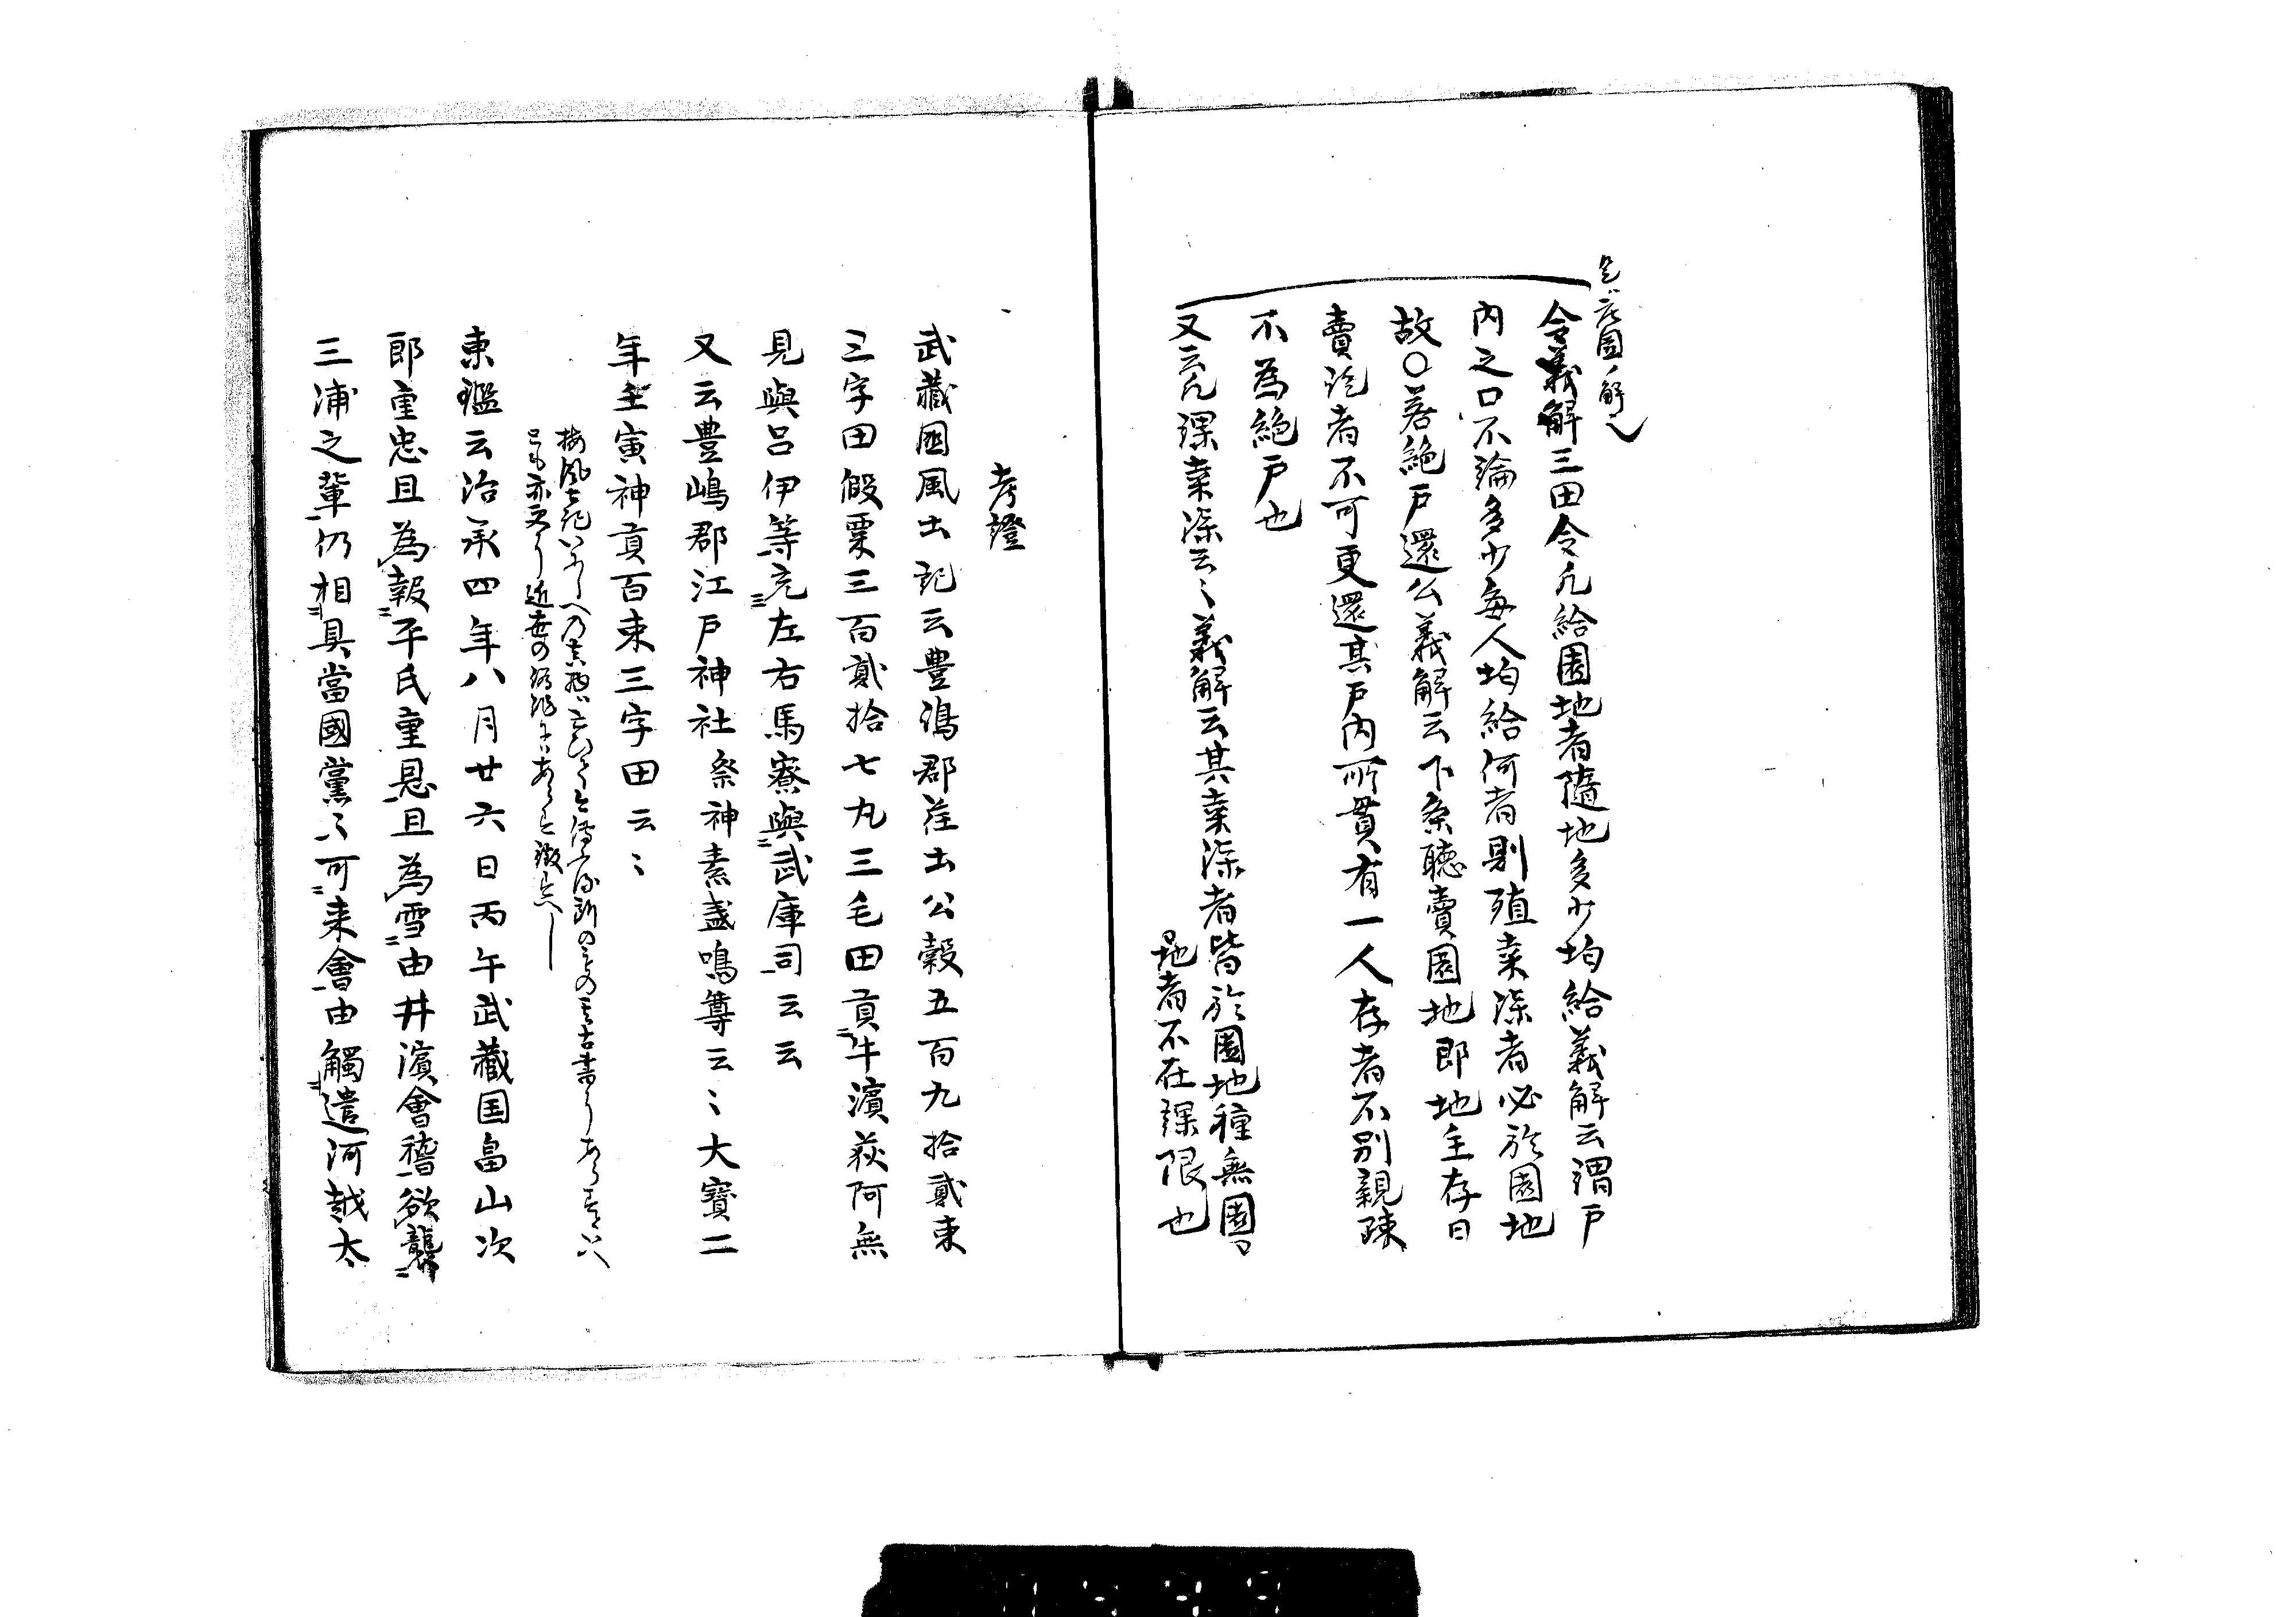 令義解三田令凡給園地者隨地多少均給義解云謂戸
内之口不論多少毎人均給何者則殖桒漆者必於園地
故〇若絶戸還公義解云下条聴賣園地即地主存日
賣訖者不可更還其戸内所貫有一人存者不別親踈
不為絶戸也
又云凡課桒漆云〻義解云其桒漆者皆於園地種無園
地者不在課限也
考證
武藏國風土記云豊嶋郡荏土公穀五百九拾貳束
三字田假粟三百貳拾七丸三毛田貢牛濱荻阿無
見與呂伊等充左右馬寮與武庫司云云
又云豊嶋郡江戸神社祭神素盞鳴尊云〻大寶二
年壬寅神貢百束三字田云〻
東鑑云治承四年八月廿六日丙午武藏国畠山次
郎重忠且為報平氏重恩且為雪由井濱會稽欲襲
三浦之輩仍相具當國黨〻可来會由觸遣河越太